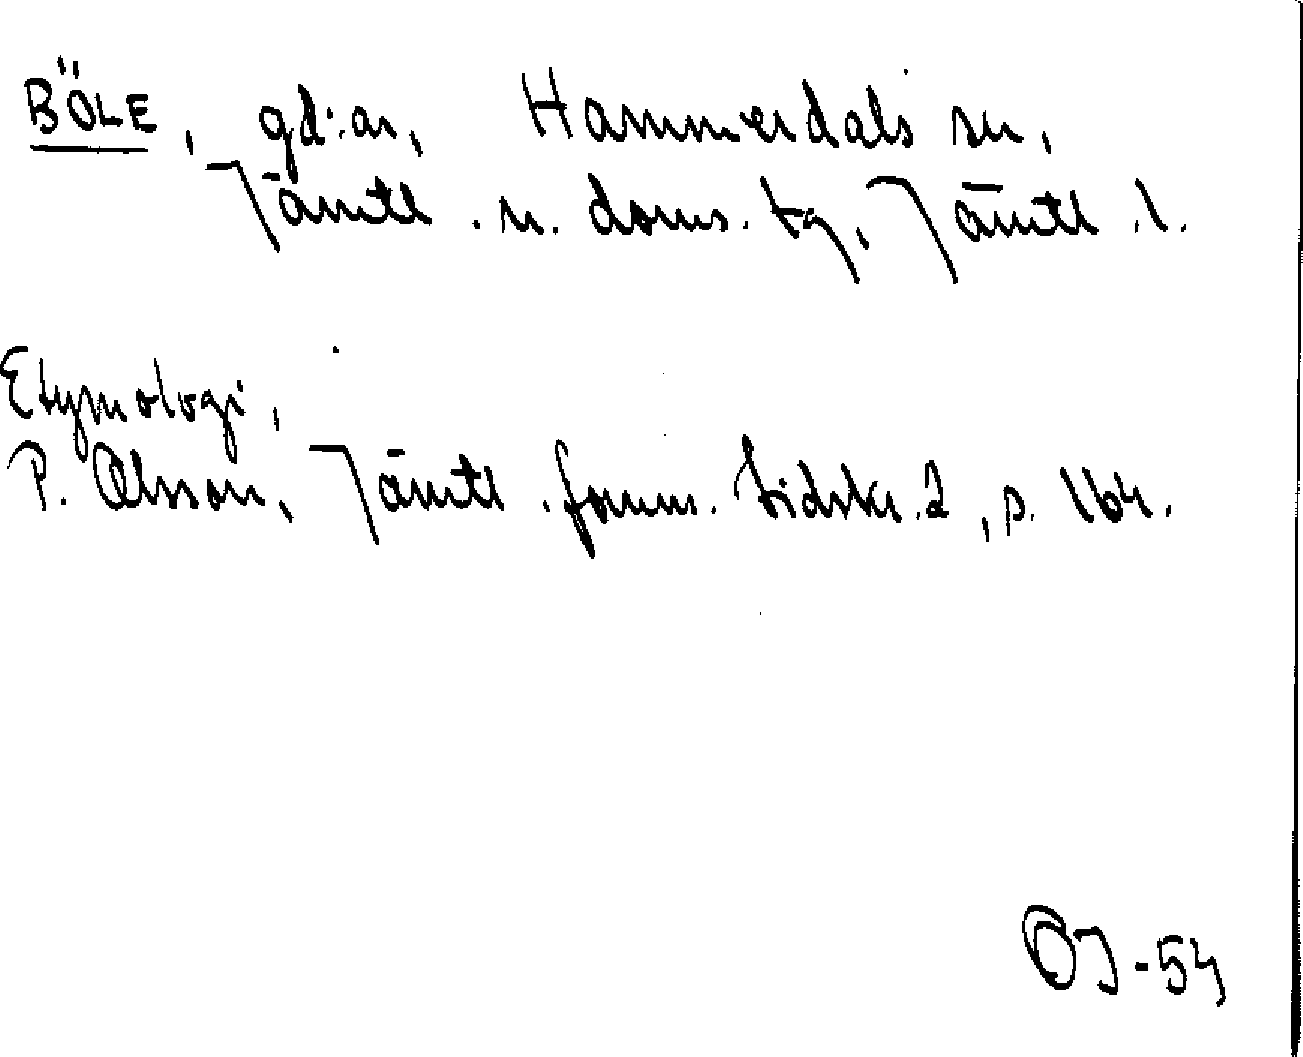 BÖLE, gd:ar, Hammerdals sn,
Jämtl. n. doms. tg, Jämtl. l.
Etymologi,
P. Olsson, Jämtl. fornm. tidskr. 2, s. 164.
OJ-54